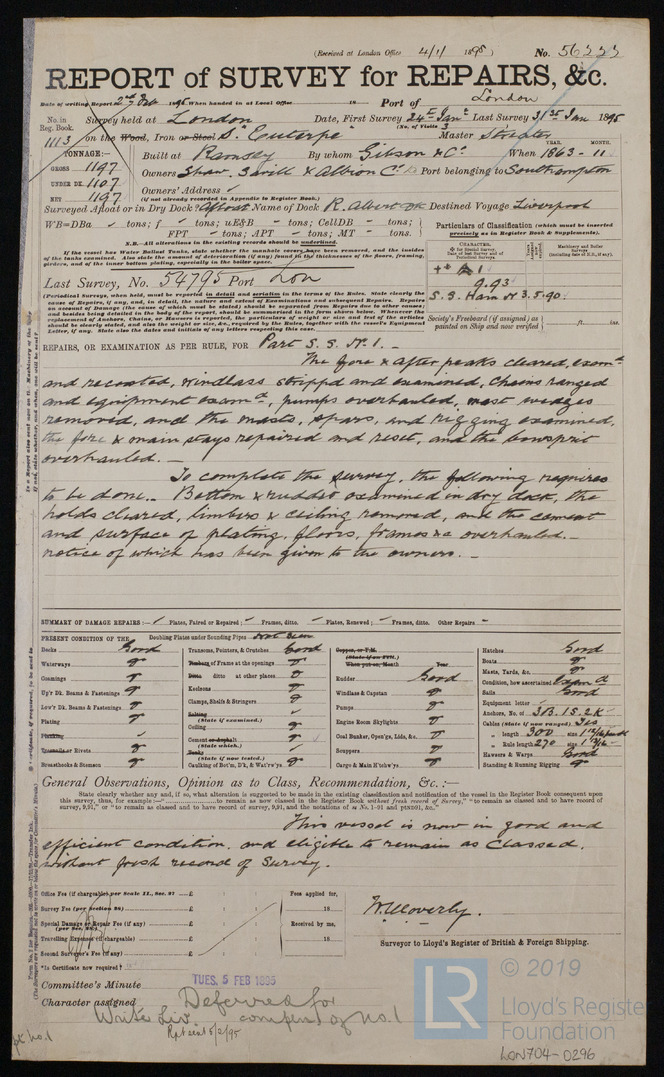 (Received at London Office 4/11 1895) No. 56223
REPORT of SURVEY for REPAIRS, &c.
Date of writing Report 2nd Feb 1895 When handed in at Local Office 18 Port of London
No. in Reg. Book. Survey held at London Date, First Survey 24th Jany Last Survey 31st Jan 1895
(No. of Visits 3
1113 on the Wood, Iron or Steel S. "Euterpe" Master Streater
TONNAGE:— GROSS 1197 Built at Ramsey By whom Gibson & Co. When 1863-11 YEAR. MONTH.
UNDER DK. 1107 Owners Shaw, Savill & Albion Co Ld Port belonging to Southampton
NET 1197 Owners' Address
(if not already recorded in Appendix to Register Book.)
Surveyed Afloat or in Dry Dock? Afloat Name of Dock R. Albert Dk Destined Voyage Liverpool
WB=DBa - tons; f - tons; uE&B - tons; CellDB - tons;
FPT - tons; APT - tons; MT - tons.
N.B.—All alterations in the existing records should be underlined.
If the vessel has Water Ballast Tanks, state whether the manhole covers have been removed, and the insides of the tanks examined. Also state the amount of deterioration (if any) found in the thicknesses of the floors, framing, girders, and of the inner bottom plating, especially in the boiler space.
Particulars of Classification (which must be inserted precisely as in Register Book & Supplements).
Last Survey, No. 54795 Port Lon
9.93
S.S. Ham No 3.5.90
(Periodical Surveys, when held, must be reported in detail and seriatim in the terms of the Rules. State clearly the cause of Repairs, if any, and, in detail, the nature and extent of Examinations and subsequent Repairs.
Society's Freeboard (if assigned) as painted on Ship and now verified ft. ins.
REPAIRS, OR EXAMINATION AS PER RULE, FOR Part S.S. No 1. -
The fore & after peaks cleared, examd
and recoated, windlass stripped and examined, chains ranged
and equipment examd, pumps overhauled, mast wedges
removed, and the masts, spars, and rigging examined,
the fore & main stays repaired and reset, and the bowsprit
overhauled. -
To complete the survey, the following requires
to be done. - Bottom & rudder examined in dry dock, the
holds cleared, limbers & ceiling removed, and the cement
and surface of plating, floors, frames &c overhauled. -
notice of which has been given to the owners. -
SUMMARY OF DAMAGE REPAIRS:— Plates, Faired or Repaired; Frames, ditto. Plates, Renewed; Frames, ditto. Other Repairs
PRESENT CONDITION OF THE Doubling Plates under Sounding Pipes Not seen
Decks Good
Waterways
Coamings
Up'r Dk. Beams & Fastenings
Low'r Dk. Beams & Fastenings
Plating
Planking
Treenails or Rivets
Breasthooks & Stemson
Transoms, Pointers, & Crutches Good
Timbers of Frame at the openings
Ditto ditto at other places
Keelsons
Clamps, Shelfs & Stringers
Salting
(State if examined.)
Ceiling
Cement or Asphalt
(State which.)
(State if now tested.)
Caulking of Bot'm, D'k, & Wat'rw'ys
Copper, or Y.M.
(State if on Felt.)
When put on, Month Year
Rudder Good
Windlass & Capstan
Pumps
Engine Room Skylights
Coal Bunker, Open'gs, Lids, &c.
Scuppers
Cargo & Main H'tchw'ys
Hatches Good
Boats
Masts, Yards, &c.
Condition, how ascertained Examd
Sails Good
Equipment letter
Anchors, No. of 3B.1S.2K
Cables (State if now ranged) Yes
" length 300 size
" Rule length 270 size
Hawsers & Warps Good
Standing & Running Rigging
General Observations, Opinion as to Class, Recommendation, &c.:—
State clearly whether any and, if so, what alteration is suggested to be made in the existing classification and notification of the vessel in the Register Book consequent upon this survey, thus, for example:—"to remain as now classed in the Register Book without fresh record of Survey," "to remain as classed and to have record of survey, 9,91," or "to remain as classed and to have record of survey, 9,91, and the notations of ss No. 1-91 and ptND91, &c."
This vessel is now in good and
efficient condition, and eligible to remain as classed,
without fresh record of Survey.
Office Fee (if chargeable) per Scale II., Sec. 27 £
Survey Fee (per Section 28) £
Special Damage or Repair Fee (if any) £
(per Sec. 28.)
Travelling Expenses (if chargeable) £
Second Surveyor's Fee (if any) £
Fees applied for, 18
Received by me, 18
W. Moverly.
Surveyor to Lloyd's Register of British & Foreign Shipping.
*Is Certificate now required?
Committee's Minute TUES. 5 FEB 1895
Character assigned Deferred for
Write Liv. compn of No. 1
Rpt seal 5/2/95
pt no. 1
LR © 2019
Lloyd's Register
Foundation
LON704-0296